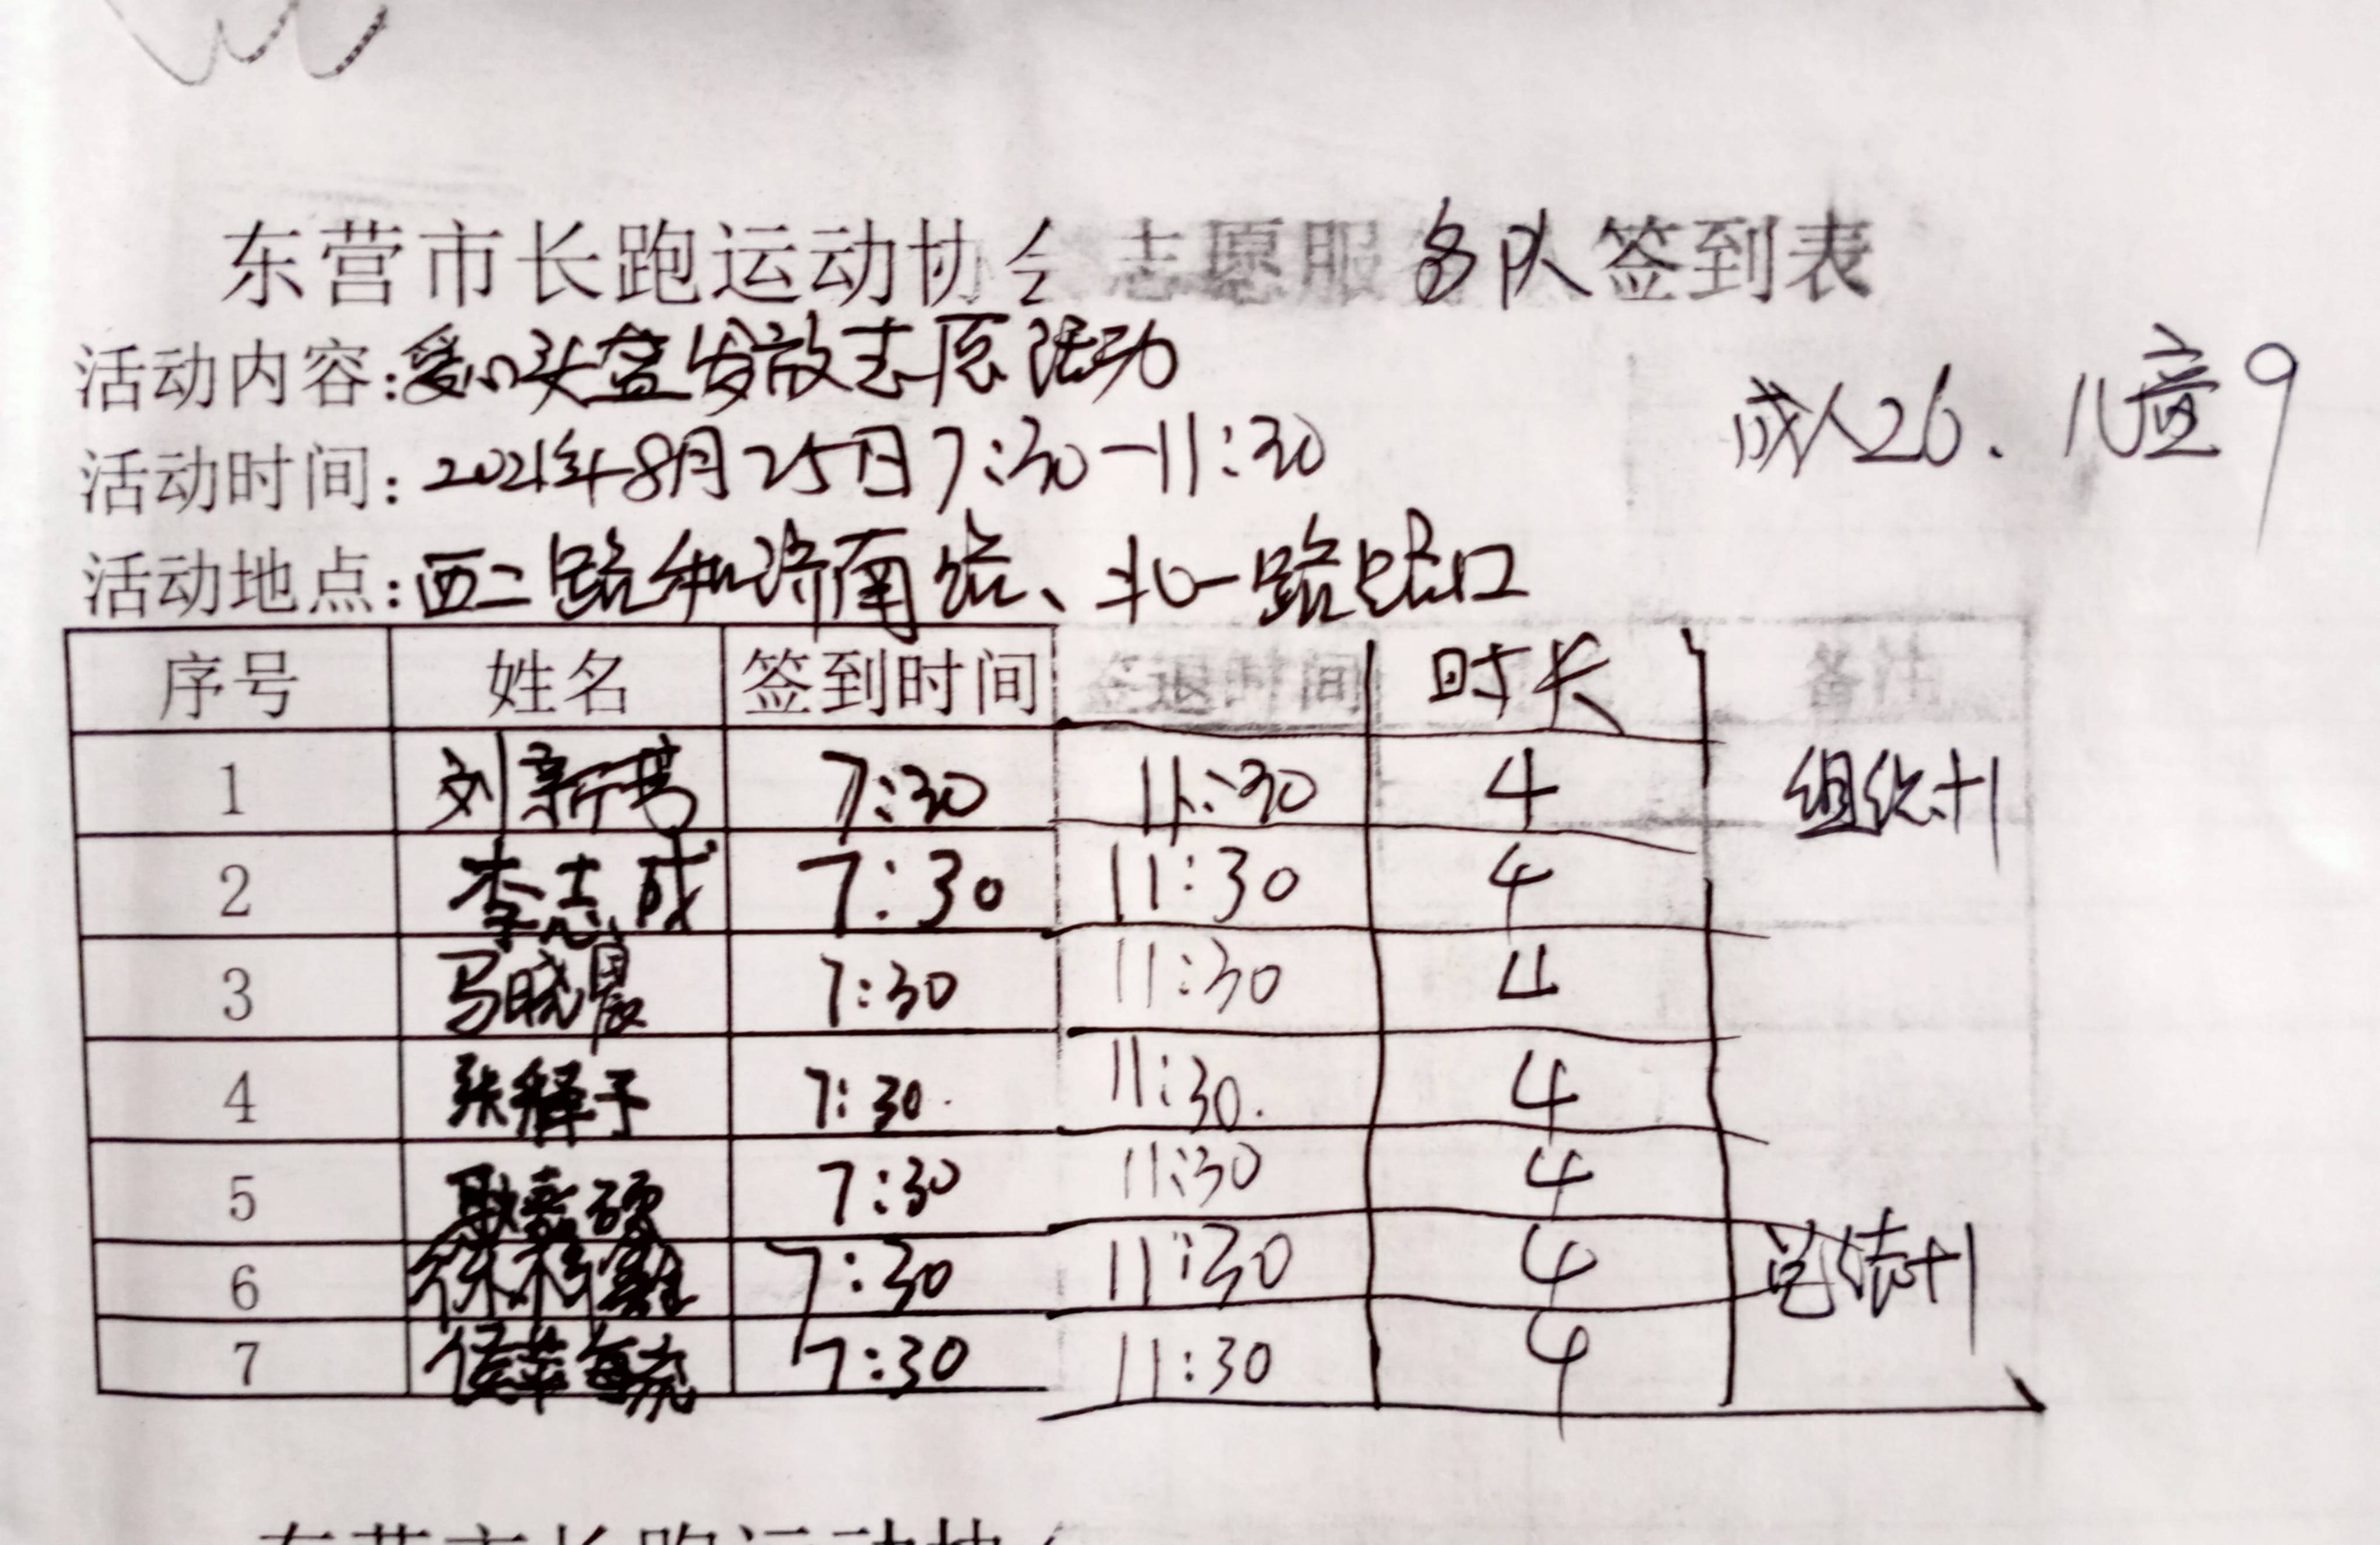 东营市长跑运动协会志愿服务队签到表
活动内容:爱心头盔发放志愿活动
成人26、儿童9
活动时间:2021年8月25日7:30-11:30
活动地点:西二路和济南路、北一路路口
序号 姓名 签到时间 签退时间 时长 备注
1 刘新 7:30 11:30 4 组织+1
2 李志成 7:30 11:30 4
3 马晓晨 7:30 11:30 4
4 张释予 7:30. 11:30. 4
5 7:30 11:30 4
6 徐 7:30 11:30 4 总结+1
7 7:30 11:30 4
东营市长跑运动协会